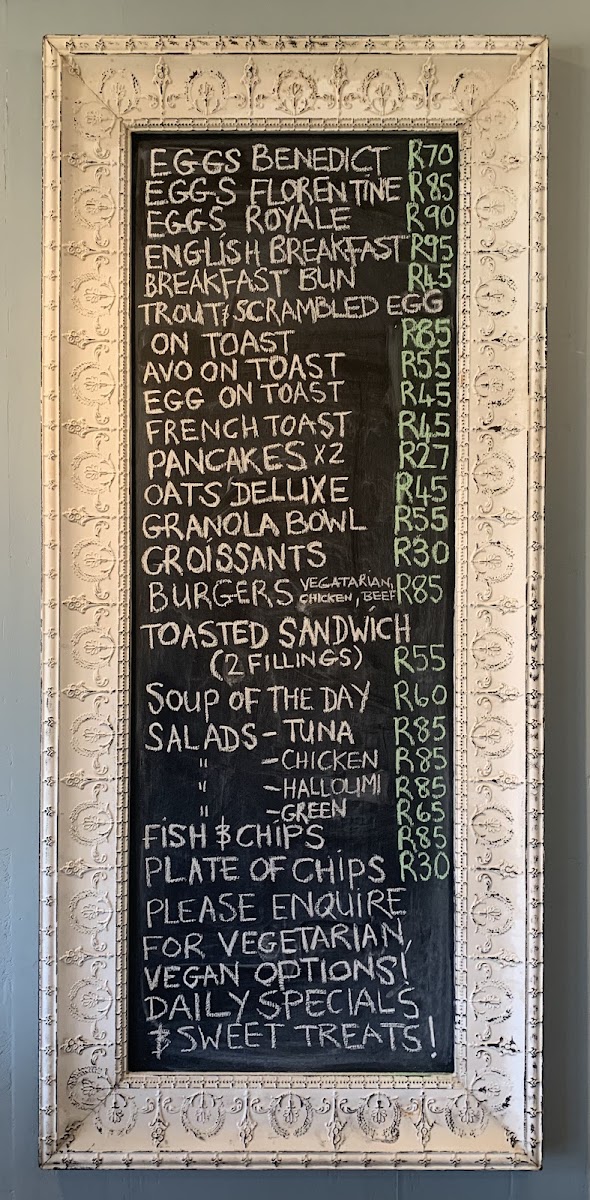 EGGS BENEDICT R70
EGGS FLORENTINE R85
EGGS ROYALE R90
ENGLISH BREAKFAST R95
BREAKFAST BUN R45
TROUT & SCRAMBLED EGG
ON TOAST R85
AVO ON TOAST R55
EGG ON TOAST R45
FRENCH TOAST R45
PANCAKES X2 R27
OATS DELUXE R45
GRANOLA BOWL R55
CROISSANTS R30
BURGERS VEGATARIAN, CHICKEN, BEEF R85
TOASTED SANDWICH
(2 FILLINGS) R55
SOUP OF THE DAY R60
SALADS - TUNA R85
" - CHICKEN R85
" - HALLOUMI R85
" - GREEN R65
FISH & CHIPS R85
PLATE OF CHIPS R30
PLEASE ENQUIRE
FOR VEGETARIAN,
VEGAN OPTIONS!
DAILY SPECIALS
& SWEET TREATS!